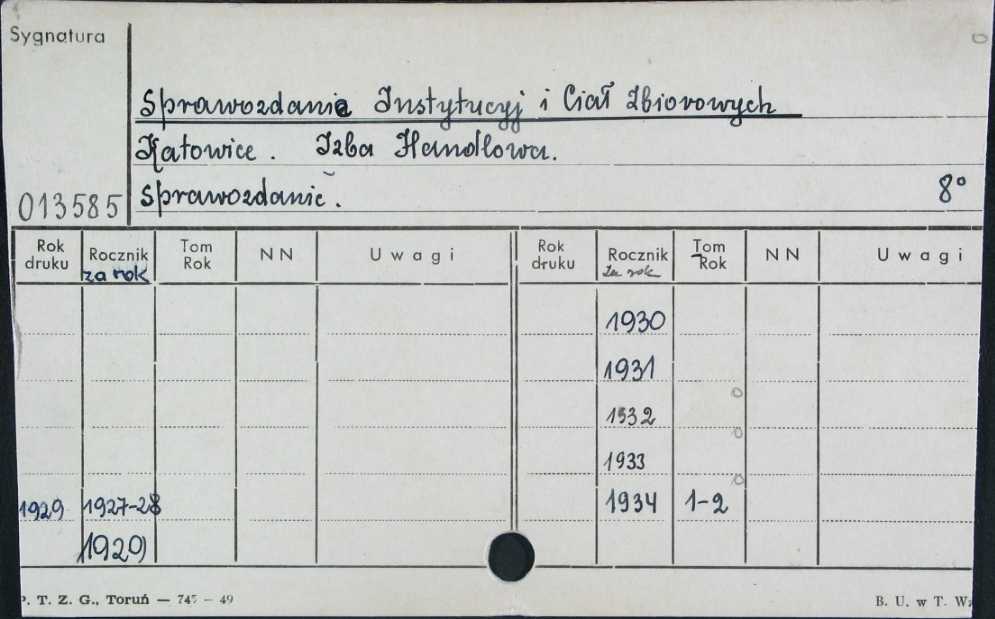 Sygnatura
Sprawozdanie Instytucyj i Ciał Zbiorowych
Katowice. Izba Handlowa.
013585 Sprawozdanie. 8°
Rok druku Rocznik za rok Tom Rok NN Uwagi Rok druku Rocznik za rok Tom Rok NN Uwagi
1930
1931
1932
1933
1929 1927-28 1934 1-2
1929
P. T. Z. G., Toruń — 745 — 49 B. U. w T. Wz